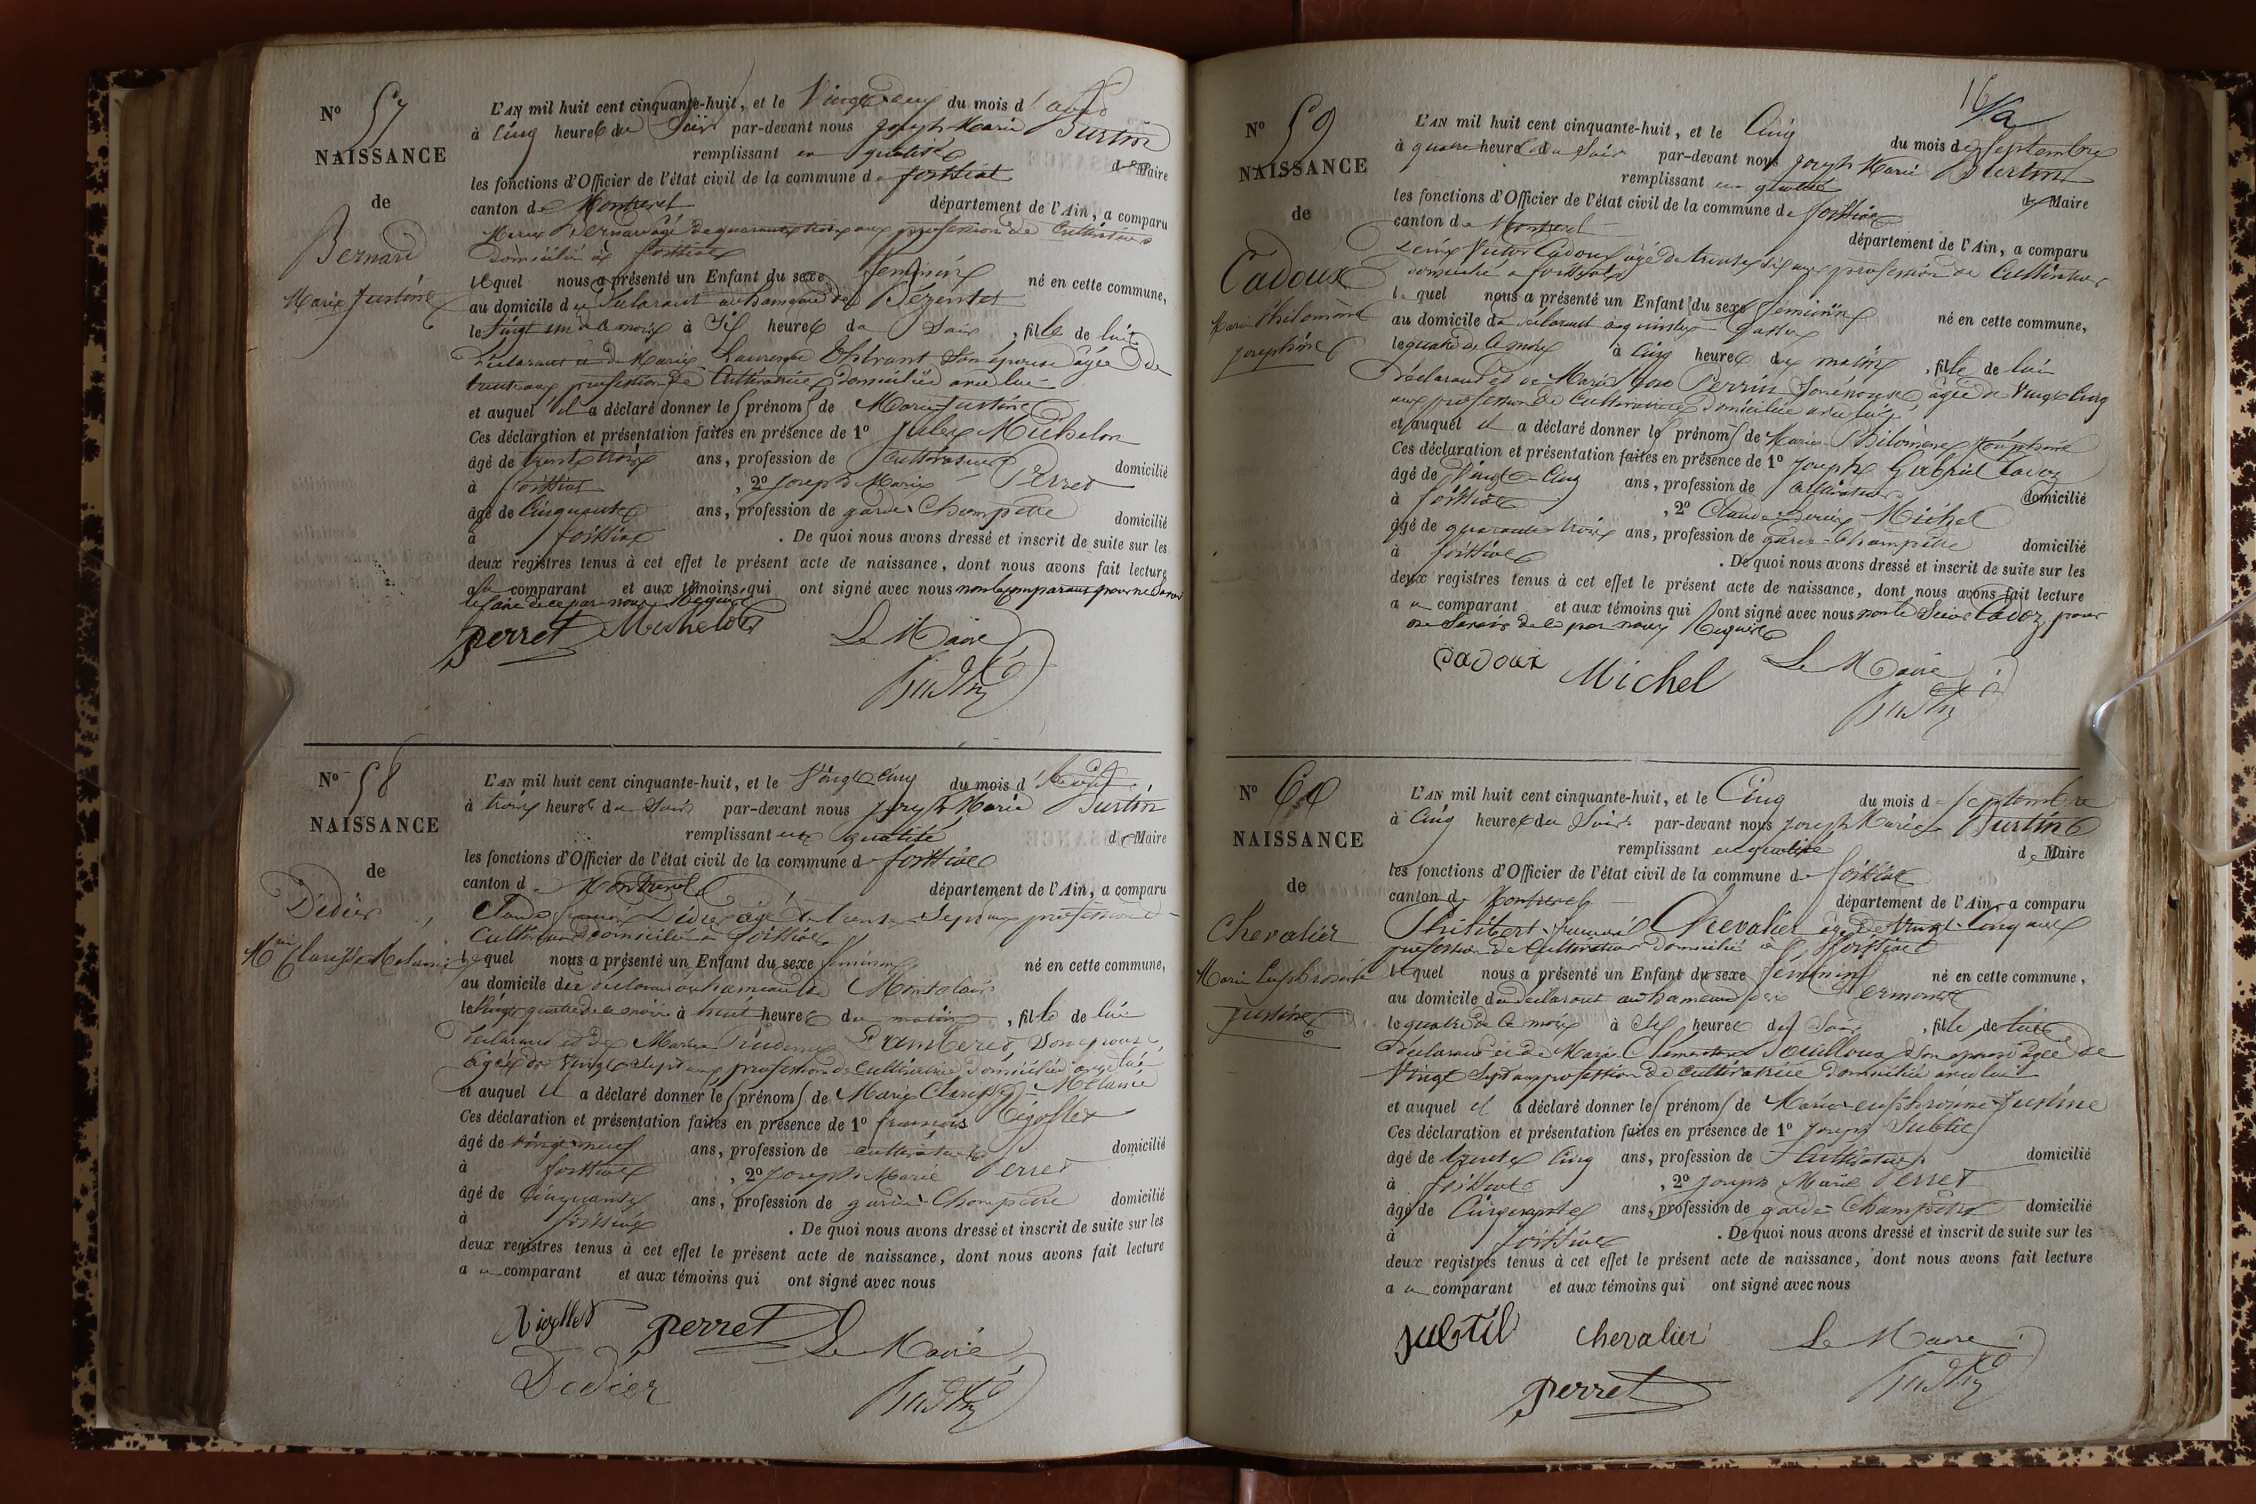 N° 57
NAISSANCE
de
Bernard
Marie Justine
L'AN mil huit cent cinquante-huit, et le Vingt deux du mois d'août
à Cinq heures du Soir par-devant nous Joseph Marie Burtin
remplissant en qualité de Maire
les fonctions d'Officier de l'état civil de la commune de foissiat
canton de Montrevel département de l'Ain, a comparu
Bernard âgé de quarante trois ans profession de Cultivateur
Domicilié à foissiat
lequel nous a présenté un Enfant du sexe féminin né en cette commune,
au domicile du déclarant au hameau de Bézentet
le Vingt un de ce mois à Six heures du Soir, fille de lui
Déclarant et de Marie Laurence Thévant Son épouse âgée de
trente ans profession de Cultivatrice Domiciliée avec lui
et auquel il a déclaré donner les prénoms de Marie Justine
Ces déclaration et présentation faites en présence de 1° Jules Michelon
âgé de trente trois ans, profession de Cultivateur domicilié
à foissiat, 2° Joseph Marie Perret
âgé de Cinquante ans, profession de garde Champêtre domicilié
à foissiat. De quoi nous avons dressé et inscrit de suite sur les
deux registres tenus à cet effet le présent acte de naissance, dont nous avons fait lecture
au comparant et aux témoins qui ont signé avec nous non le comparant pour ne savoir
le faire de ce par nous Requis
perret Michelon Le Maire
Burtin
N° 58
NAISSANCE
de
Didier
Mie Clarisse Mélanie
L'AN mil huit cent cinquante-huit, et le Vingt Cinq du mois d'août
à trois heures du Soir par-devant nous Joseph Marie Burtin
remplissant en qualité de Maire
les fonctions d'Officier de l'état civil de la commune de foissiat
canton de Montrevel département de l'Ain, a comparu
Claude françois Didier âgé de trente Sept ans profession de
Cultivateur domicilié à foissiat
lequel nous a présenté un Enfant du sexe féminin né en cette commune,
au domicile du déclarant au hameau de Montalair
le Vingt quatre de ce mois à huit heures du matin, fille de lui
Déclarant et de Marie Prudence Pamberet, Son épouse,
âgée de Vingt Sept ans profession de Cultivatrice Domiciliée avec lui
et auquel il a déclaré donner les prénoms de Marie Clarisse Mélanie
Ces déclaration et présentation faites en présence de 1° françois Nigollet
âgé de vingt neuf ans, profession de cultivateur domicilié
à foissiat, 2° Joseph Marie Perret
âgé de Cinquante ans, profession de garde Champêtre domicilié
à foissiat. De quoi nous avons dressé et inscrit de suite sur les
deux registres tenus à cet effet le présent acte de naissance, dont nous avons fait lecture
au comparant et aux témoins qui ont signé avec nous
Nigollet perret Le Maire
Didier Burtin
16
N° 59
NAISSANCE
de
Cadoux
Marie Philomène
Joséphine
L'AN mil huit cent cinquante-huit, et le Cinq du mois de Septembre
à quatre heures du Soir par-devant nous Joseph Marie Burtin
remplissant en qualité de Maire
les fonctions d'Officier de l'état civil de la commune de foissiat
canton de Montrevel département de l'Ain, a comparu
Denis Victor Cadoux âgé de trente Six ans profession de Cultivateur
domicilié à foissiat
lequel nous a présenté un Enfant du sexe féminin né en cette commune,
au domicile du déclarant
le quatre de ce mois à Cinq heures du matin, fille de lui
Déclarant et de Marie Rose Perrin Son épouse âgée de Vingt Cinq
ans profession de Cultivatrice domiciliée avec lui
et auquel il a déclaré donner les prénoms de Marie Philomène Joséphine
Ces déclaration et présentation faites en présence de 1° Joseph Gabriel Cavoz
âgé de Vingt-Cinq ans, profession de Cultivateur domicilié
à foissiat, 2° Claude Denis Michel
âgé de quarante trois ans, profession de garde-Champêtre domicilié
à foissiat. De quoi nous avons dressé et inscrit de suite sur les
deux registres tenus à cet effet le présent acte de naissance, dont nous avons fait lecture
au comparant et aux témoins qui ont signé avec nous non le Sieur Cavoz pour
ne Savoir de ce par nous Requis
Cadoux Michel Le Maire
Burtin
N° 60
NAISSANCE
de
Chevalier
Marie Euphrosine
Justine
L'AN mil huit cent cinquante-huit, et le Cinq du mois de Septembre
à Cinq heures du Soir par-devant nous Joseph Marie Burtin
remplissant en qualité de Maire
les fonctions d'Officier de l'état civil de la commune de foissiat
canton de Montrevel département de l'Ain, a comparu
Philibert françois Chevalier âgé de Vingt-Cinq ans
profession de Cultivateur domicilié à foissiat
lequel nous a présenté un Enfant du sexe féminin né en cette commune,
au domicile du déclarant au hameau de
le quatre de ce mois à Six heures du Soir, fille de lui
Déclarant et de Marie Clémentine Souilloux Son épouse âgée de
Vingt Sept ans profession de cultivatrice domiciliée avec lui
et auquel il a déclaré donner les prénoms de Marie euphrosine Justine
Ces déclaration et présentation faites en présence de 1° Joseph Subtil
âgé de trente Cinq ans, profession de Cultivateur domicilié
à foissiat, 2° Joseph Marie Perret
âgé de Cinquante ans, profession de garde Champêtre domicilié
à foissiat. De quoi nous avons dressé et inscrit de suite sur les
deux registres tenus à cet effet le présent acte de naissance, dont nous avons fait lecture
au comparant et aux témoins qui ont signé avec nous
subtil chevalier Le Maire
perret Burtin